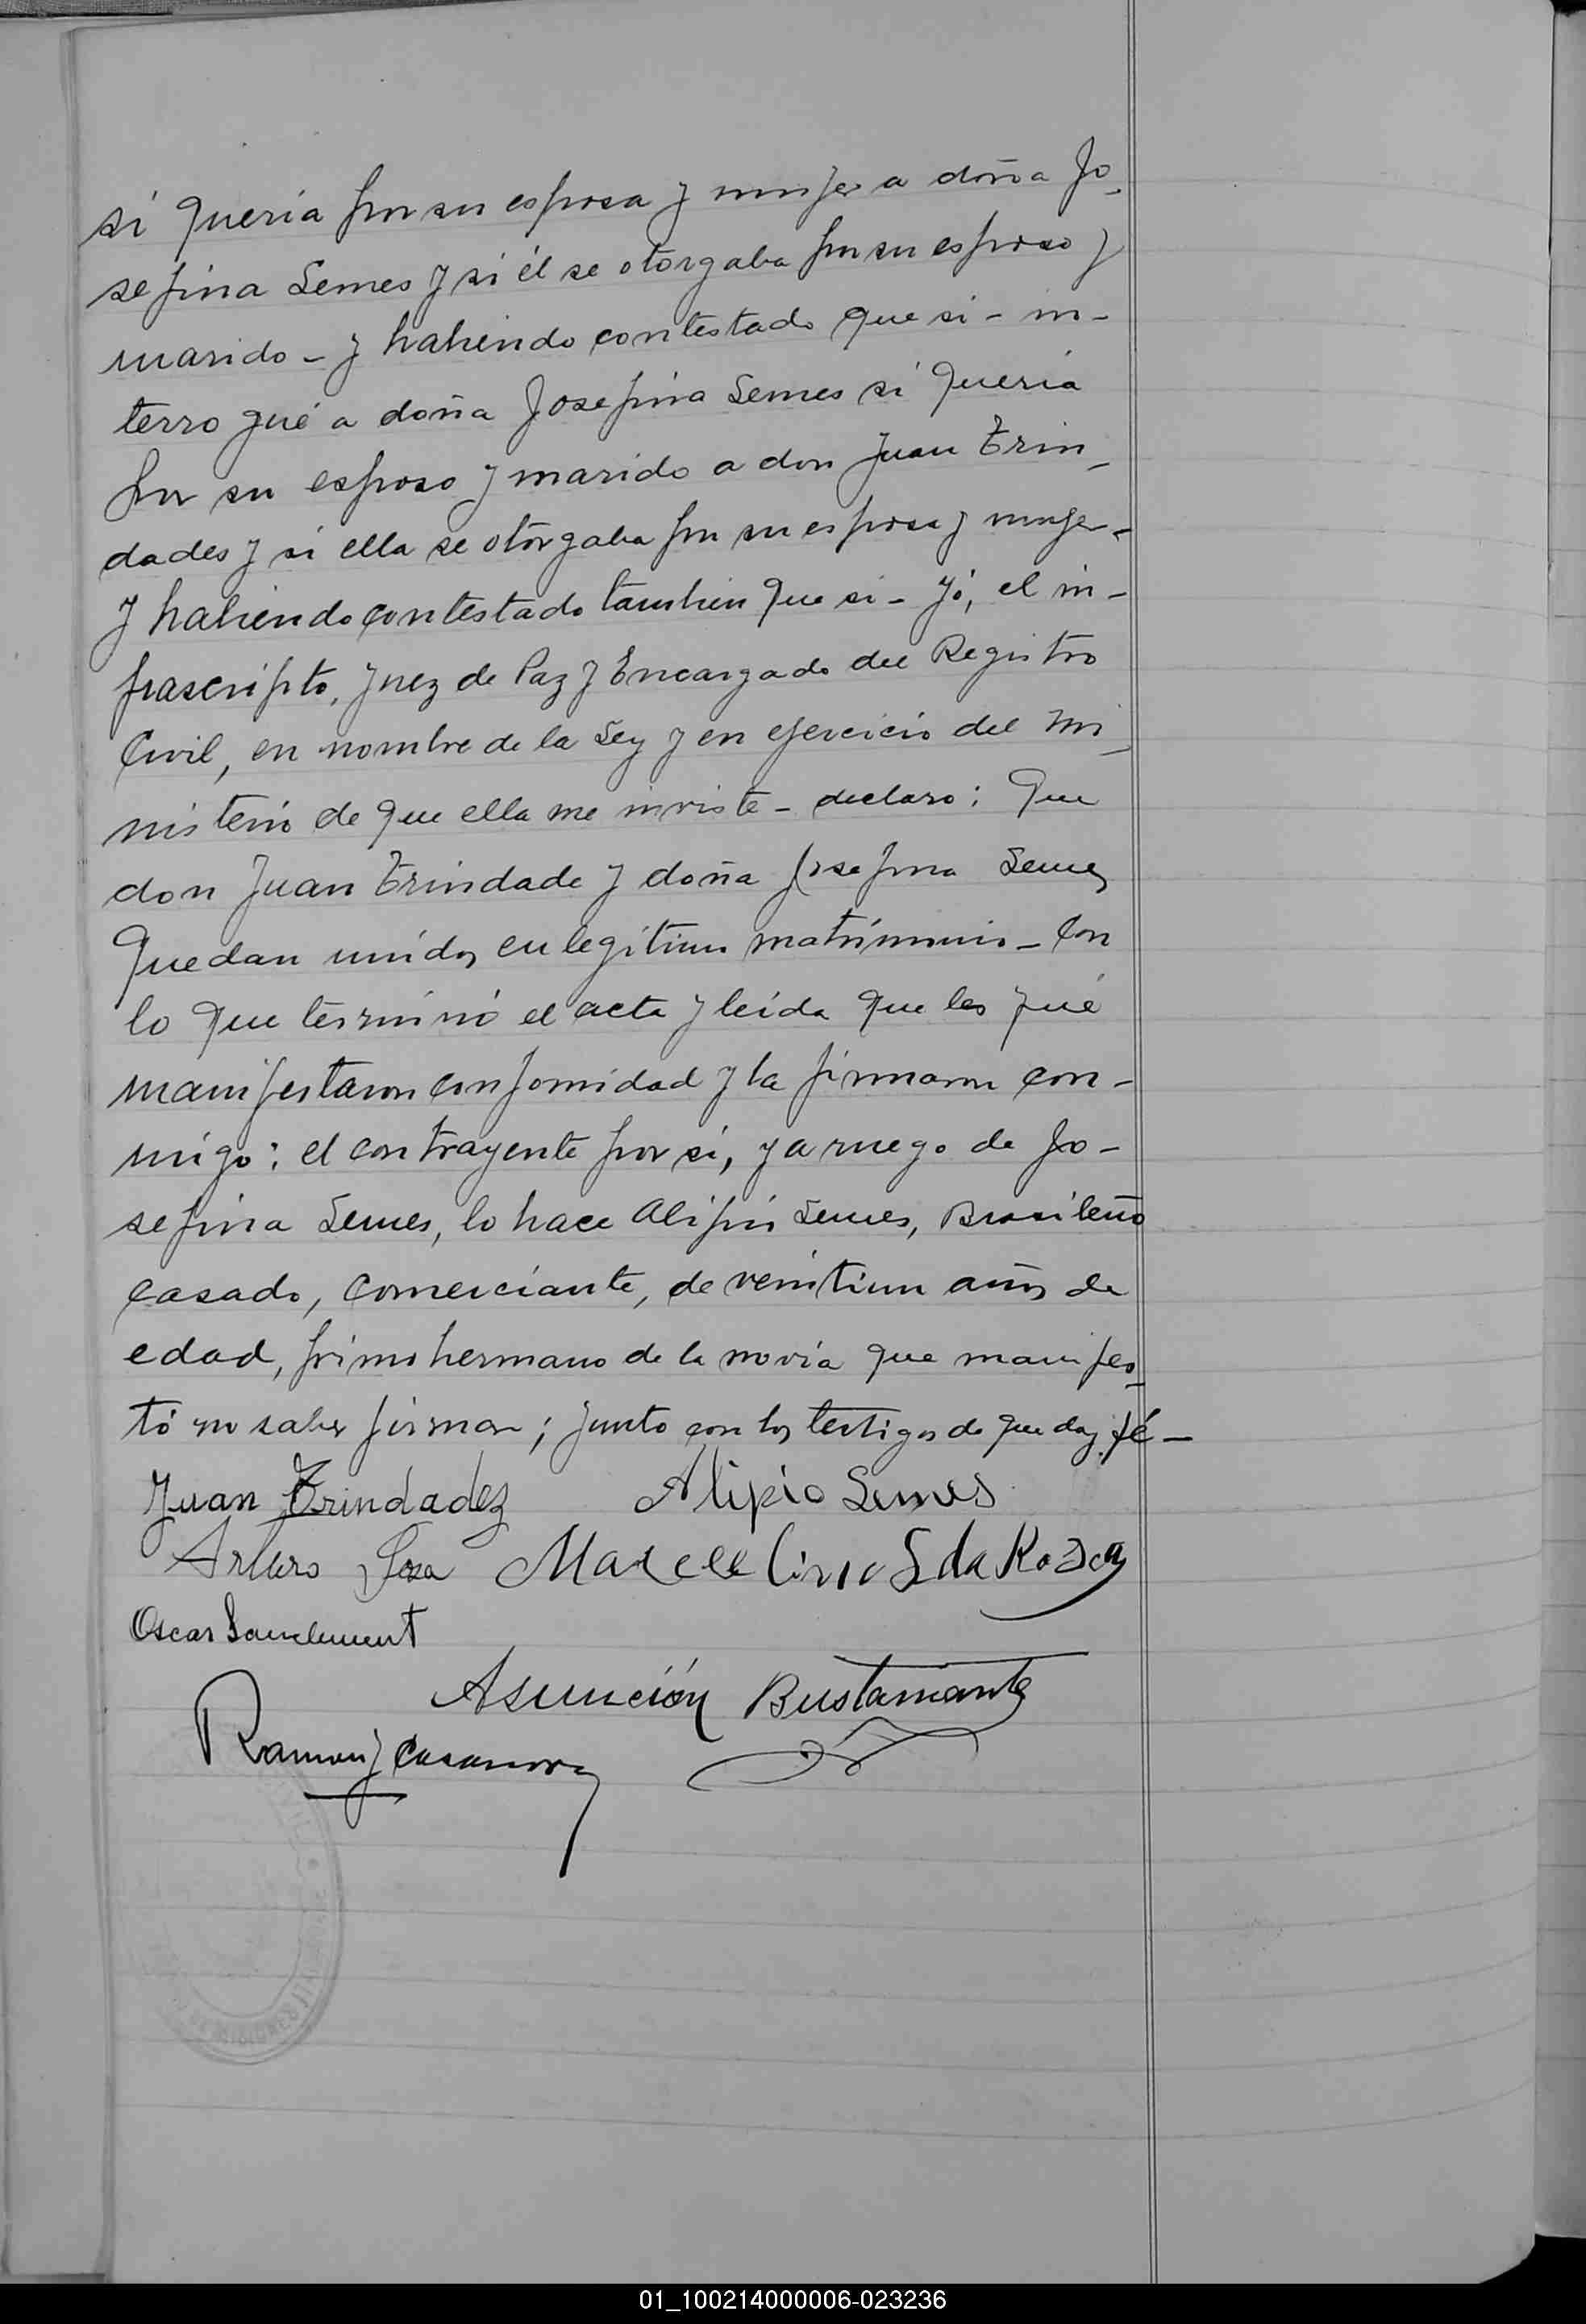 si queria por su esposa y mujer a doña Jo-
sefina Lemes y si él se otorgaba por su esposo y
marido - y habiendo contestado que si - in-
terrogué a doña Josefina Lemes si queria
por su esposo y marido a don Juan Trin-
dades y si ella se otorgaba por su esposa y mujer -
y habiendo contestado tambien que si - Yó, el in-
frascripto, Juez de Paz y Encargado del Registro
Civil, en nombre de la Ley y en ejercicio del Mi-
nisterio de que ella me inviste - declaro: Que
don Juan Trindade y doña Josefina Lemes
quedan unidos en legitimo matrimonio - Con
lo que terminó el acta y leida que les fué
manifestaron conformidad y la firmaron con-
migo: el contrayente por si, y a ruego de Jo-
sefina Lemes, lo hace Alipio Lemes, Brasileño
casado, comerciante, de veintiun años de
edad, primo hermano de la novia que manifes-
tó no saber firmar; junto con los testigos de que doy fé -
Juan Trindadez Alipio Lemes
Arturo Sosa Marcellino S da Roza
Oscar Sanclement
Asunción Bustamante
Ramon J Casanova
01_100214000006-023236